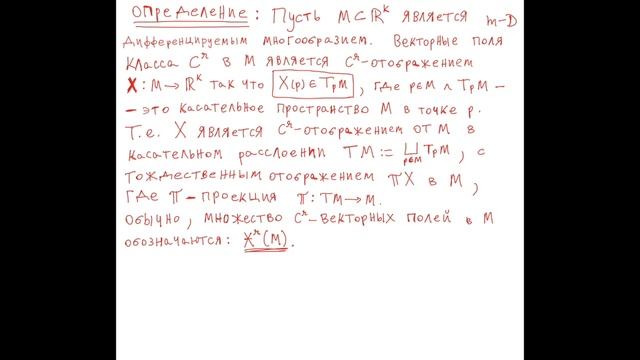 Определение: Пусть M⊂ℝᵏ является m-D
дифференцируемым многообразием. Векторные поля
класса Cʳ в M является Cʳ-отображением
X: M→ℝᵏ так что X(p)∈TₚM, где p∈M ∧ TₚM -
- это касательное пространство M в точке p.
Т.е. X является Cʳ-отображением от M в
касательном расслоении TM := ⊔ₚ∈M TₚM, с
тождественным отображением πX в M,
где π - проекция π: TM→M.
Обычно, множество Cʳ-векторных полей в M
обозначаются: 𝔛ʳ(M).